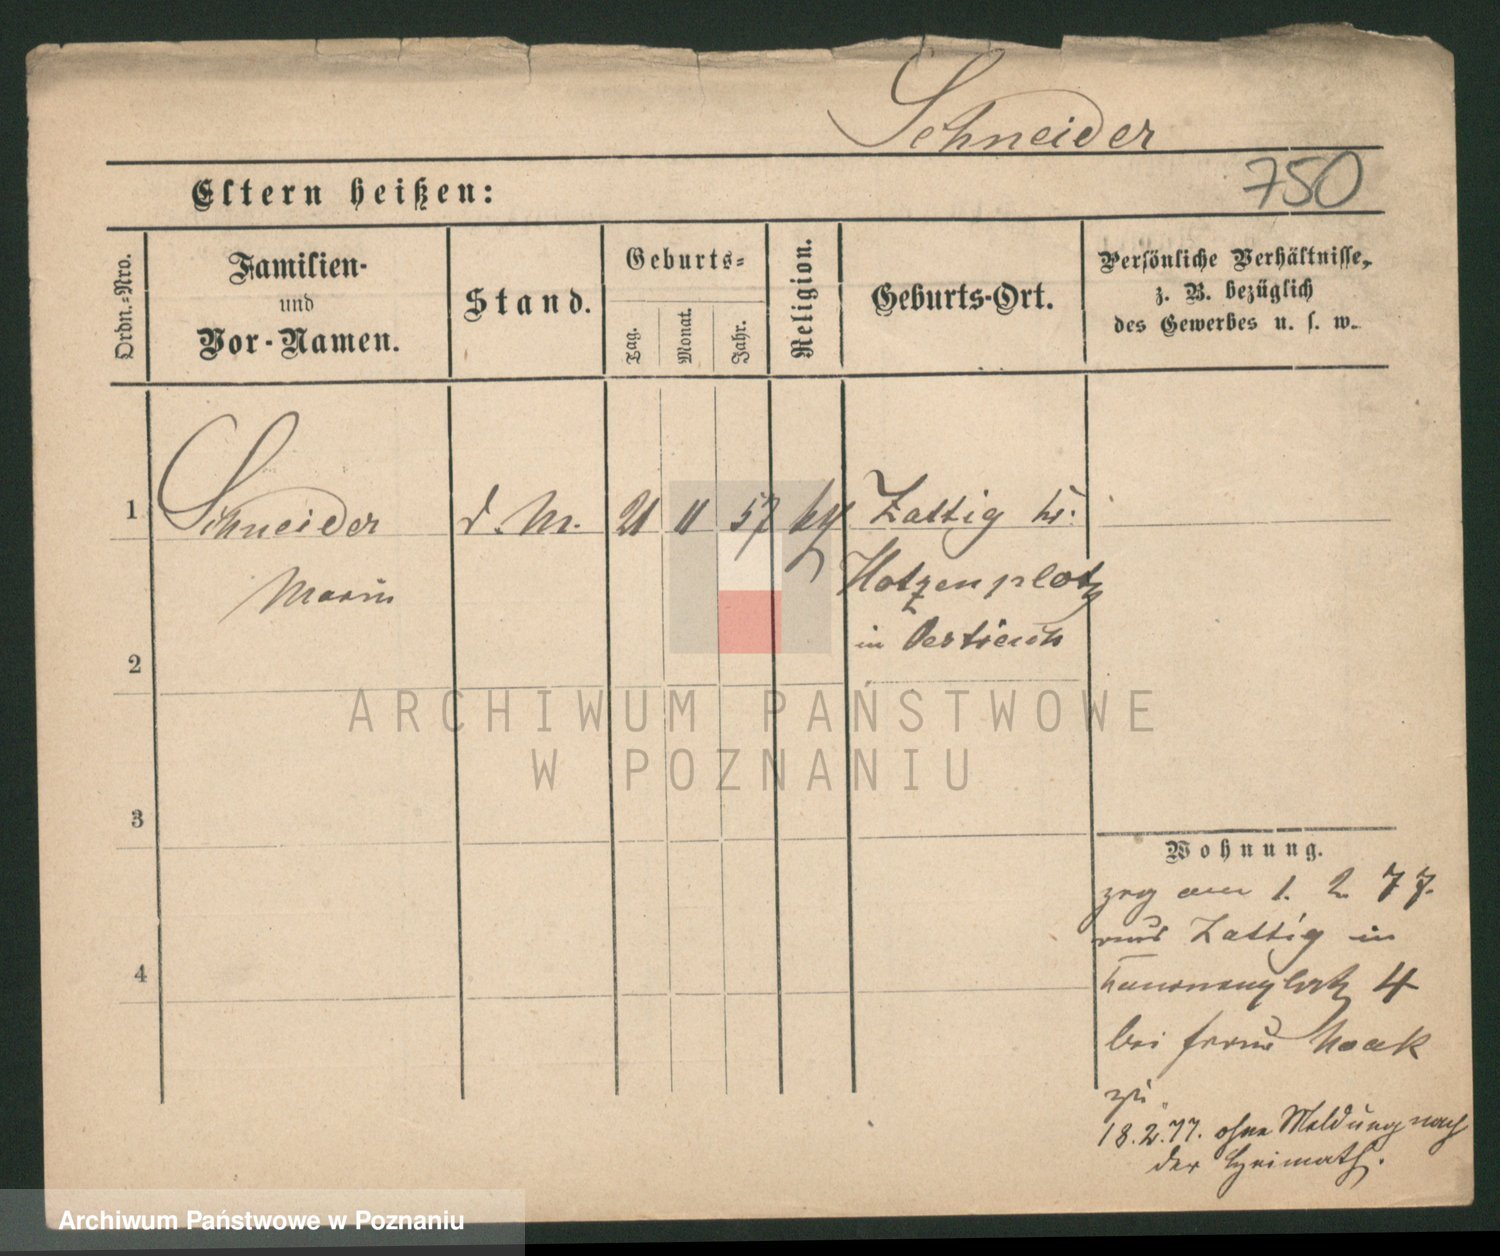 Schneider
750
Eltern heißen:
Ordn.-Nro.
Familien-
und
Vor-Namen.
Stand.
Geburts-
Tag.
Monat.
Jahr.
Religion.
Geburts-Ort.
Persönliche Verhältnisse,
z. B. bezüglich
des Gewerbes u. s. w.
1
Schneider
d. M.
21
11
57
Zattig Kr.
Marie
Hotzenplotz
in Oestreich
2
ARCHIWUM PAŃSTWOWE
W POZNANIU
3
Wohnung.
zzg am 1. 2 77.
aus Zattig in
Kanonenplatz 4
bei Frau Noak
zu
18.2.77. ohne Meldung nach
der Heimath.
4
Archiwum Państwowe w Poznaniu